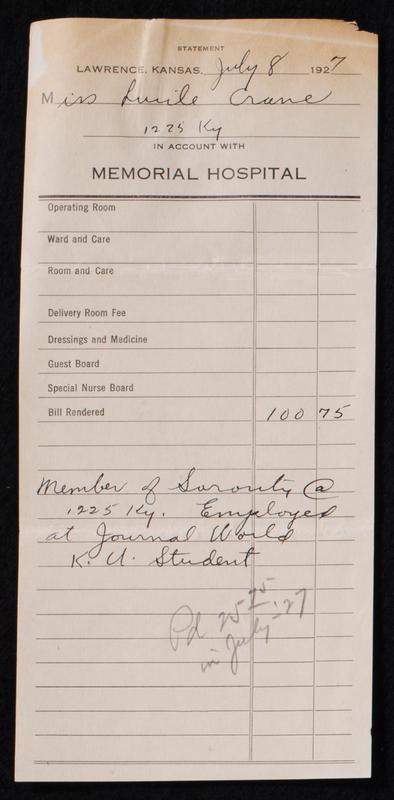 STATEMENT
LAWRENCE, KANSAS, July 8 1927
Miss Lucile Crane
1225 Ky
IN ACCOUNT WITH
MEMORIAL HOSPITAL
Operating Room
Ward and Care
Room and Care
Delivery Room Fee
Dressings and Medicine
Guest Board
Special Nurse Board
Bill Rendered 100 75
Member of Sorority @
1225 Ky. Employed
at Journal World
K. U. Student
Pd 25 75
in July - '27